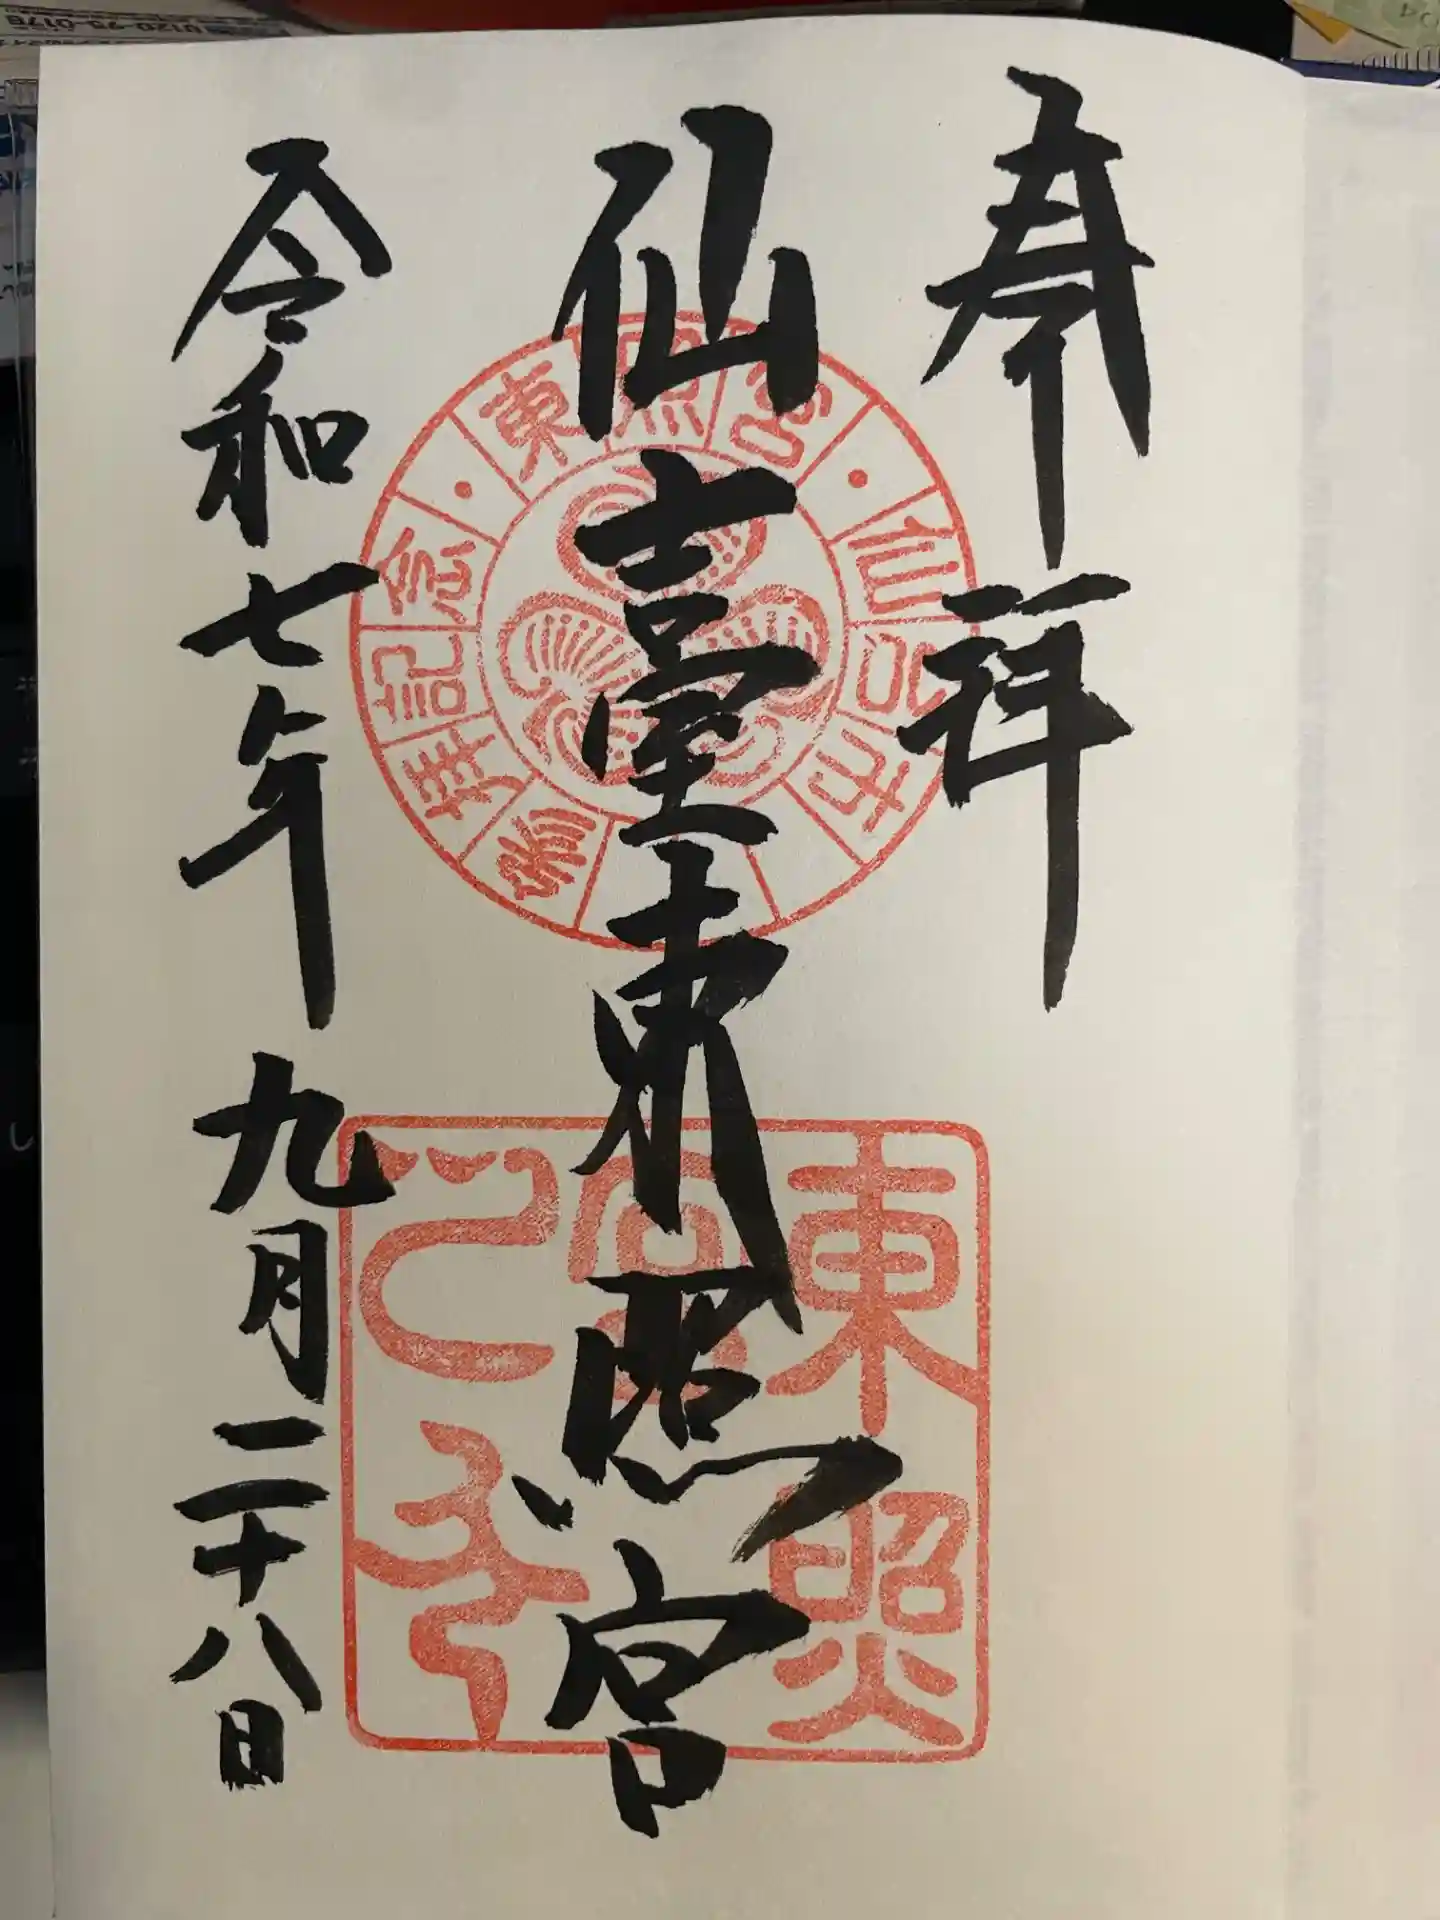 奉拝
仙臺東照宮
令和七年九月二十八日
東照宮・仙台市
参拝記念・
東照宮
0120-